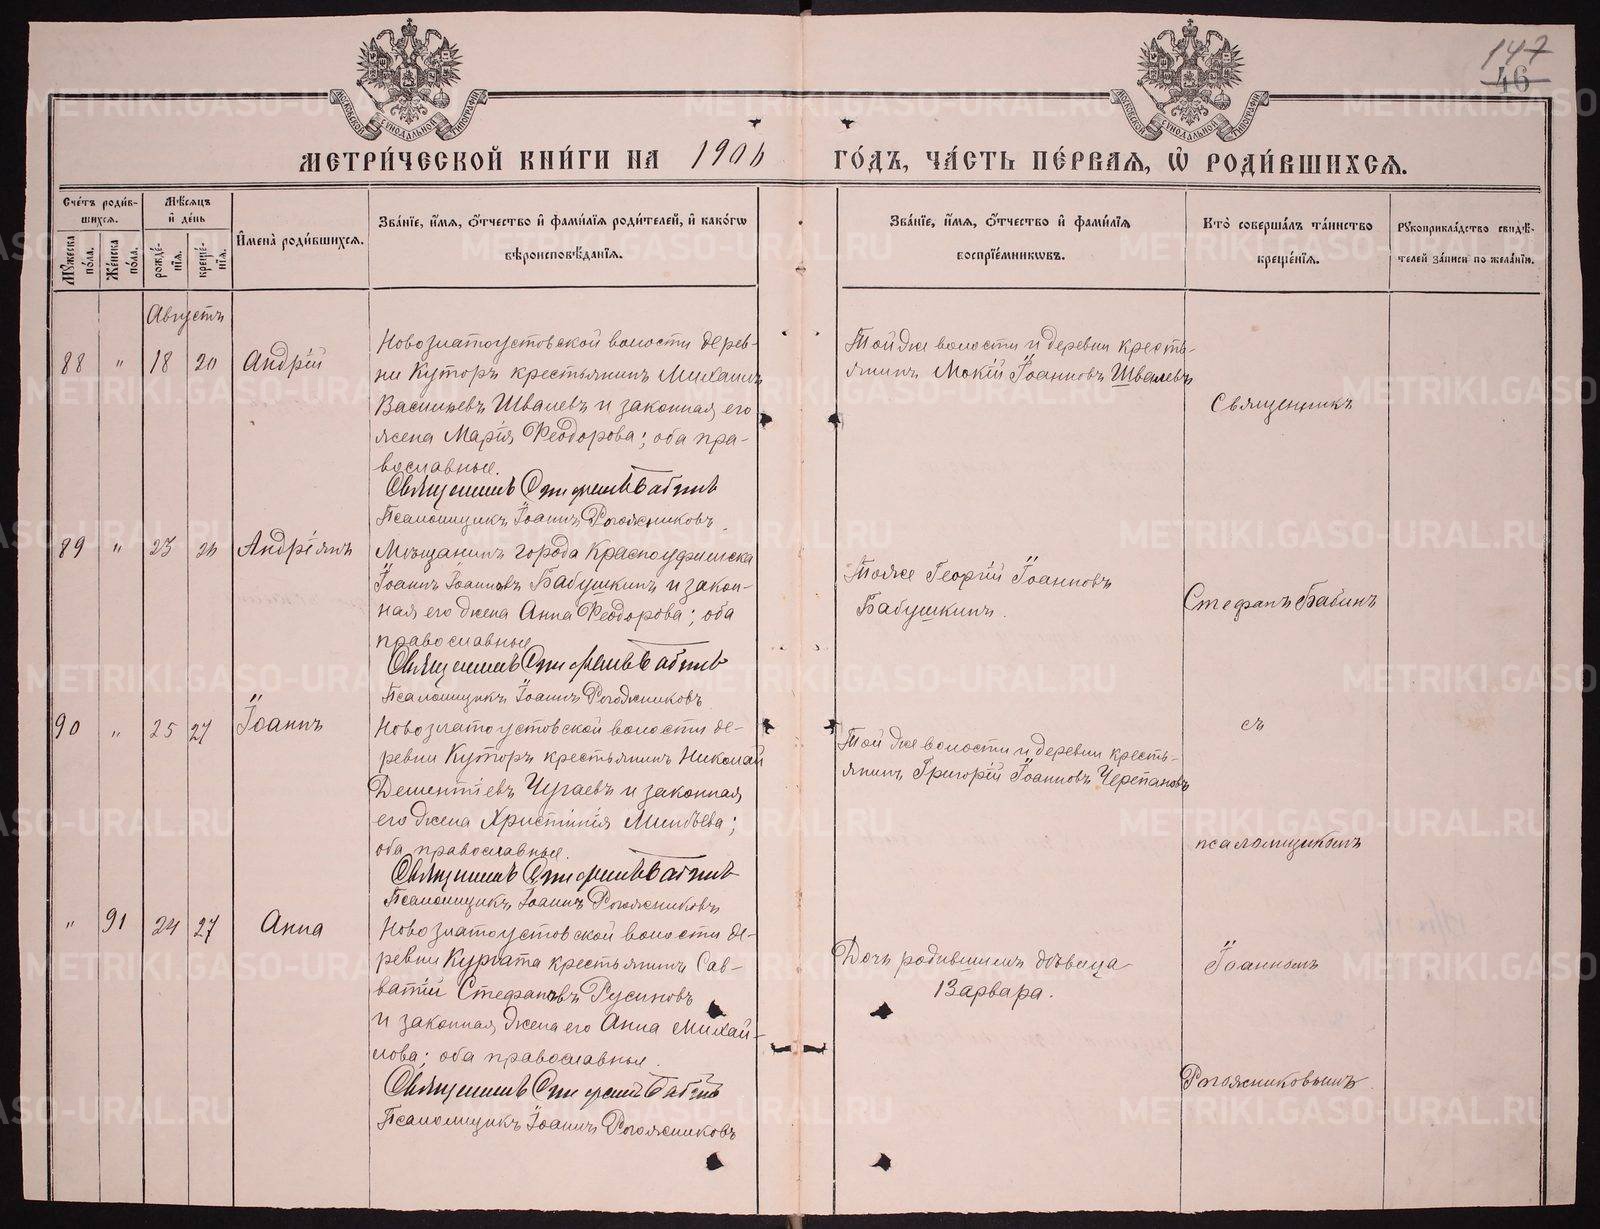 147
46
МОСКОВСКОЙ СѴНОДАЛЬНОЙ ТИПОГРАФІИ
МОСКОВСКОЙ СѴНОДАЛЬНОЙ ТИПОГРАФІИ
МЕТРИ́ЧЕСКОЙ КНИ́ГИ НА 1906 ГО́ДЪ, ЧА́СТЬ ПЕ́РВАЯ, Ѡ҆ РОДИ́ВШИХСЯ.
Сче́тъ роди́в-
шихся.
Мѣ́сяцъ
и҆ де́нь
Мꙋ́жеска по́ла.
Же́нска по́ла.
рожде́-
нїя.
креще́-
нїя.
И҆мена̀ роди́вшихся.
Зва́нїе, и҆́мя, ѻ҆́тчество и҆ фами́лїя роди́телей, и҆ како́гѡ
вѣроисповѣ́данїя.
Зва́нїе, и҆́мя, ѻ҆́тчество и҆ фами́лїя
воспрїе́мникѡвъ.
Кто̀ соверша́лъ та́инство
креще́нїя.
Рꙋкоприкла́дство свидѣ́-
телей за́писи по жела́нїю.
Августъ
88 " 18 20 Андрій
Новозлатоустовской волости дерев-
ни Куторъ крестьянинъ Михаилъ
Васильевъ Швалевъ и законная его
жена Марія Ѳеодорова; оба пра-
вославные.
Священникъ Стефанъ Бабинъ
Псаломщикъ Іоаннъ Рогожниковъ.
Той же волости и деревни кресть-
янинъ Мокій Іоанновъ Швалевъ
Священникъ
89 " 23 26 Андріянъ
Мѣщанинъ города Красноуфимска
Іоаннъ Іоанновъ Бабушкинъ и закон-
ная его жена Анна Ѳеодорова; оба
православные
Священникъ Стефанъ Бабинъ
Псаломщикъ Іоаннъ Рогожниковъ
Тоже Георгій Іоанновъ
Бабушкинъ.
Стефанъ Бабинъ
90 " 25 27 Іоаннъ
Новозлатоустовской волости де-
ревни Куторъ крестьянинъ Николай
Дементіевъ Чугаевъ и законная
его жена Христинія Минѣева;
оба православные.
Священникъ Стефанъ Бабинъ
Псаломщикъ Іоаннъ Рогожниковъ
Той же волости и деревни кресть-
янинъ Григорій Іоанновъ Черепановъ
съ
псаломщикомъ
" 91 24 27 Анна
Новозлатоустовской волости де-
ревни Кургата крестьянинъ Сав-
ватій Стефановъ Русиновъ
и законная жена его Анна Михай-
лова; оба православные.
Священникъ Стефанъ Бабинъ
Псаломщикъ Іоаннъ Рогожниковъ
Дочь родившихъ дѣвица
Варвара.
Іоанномъ
Рогожниковымъ.
METRIKI.GASO-URAL.RU